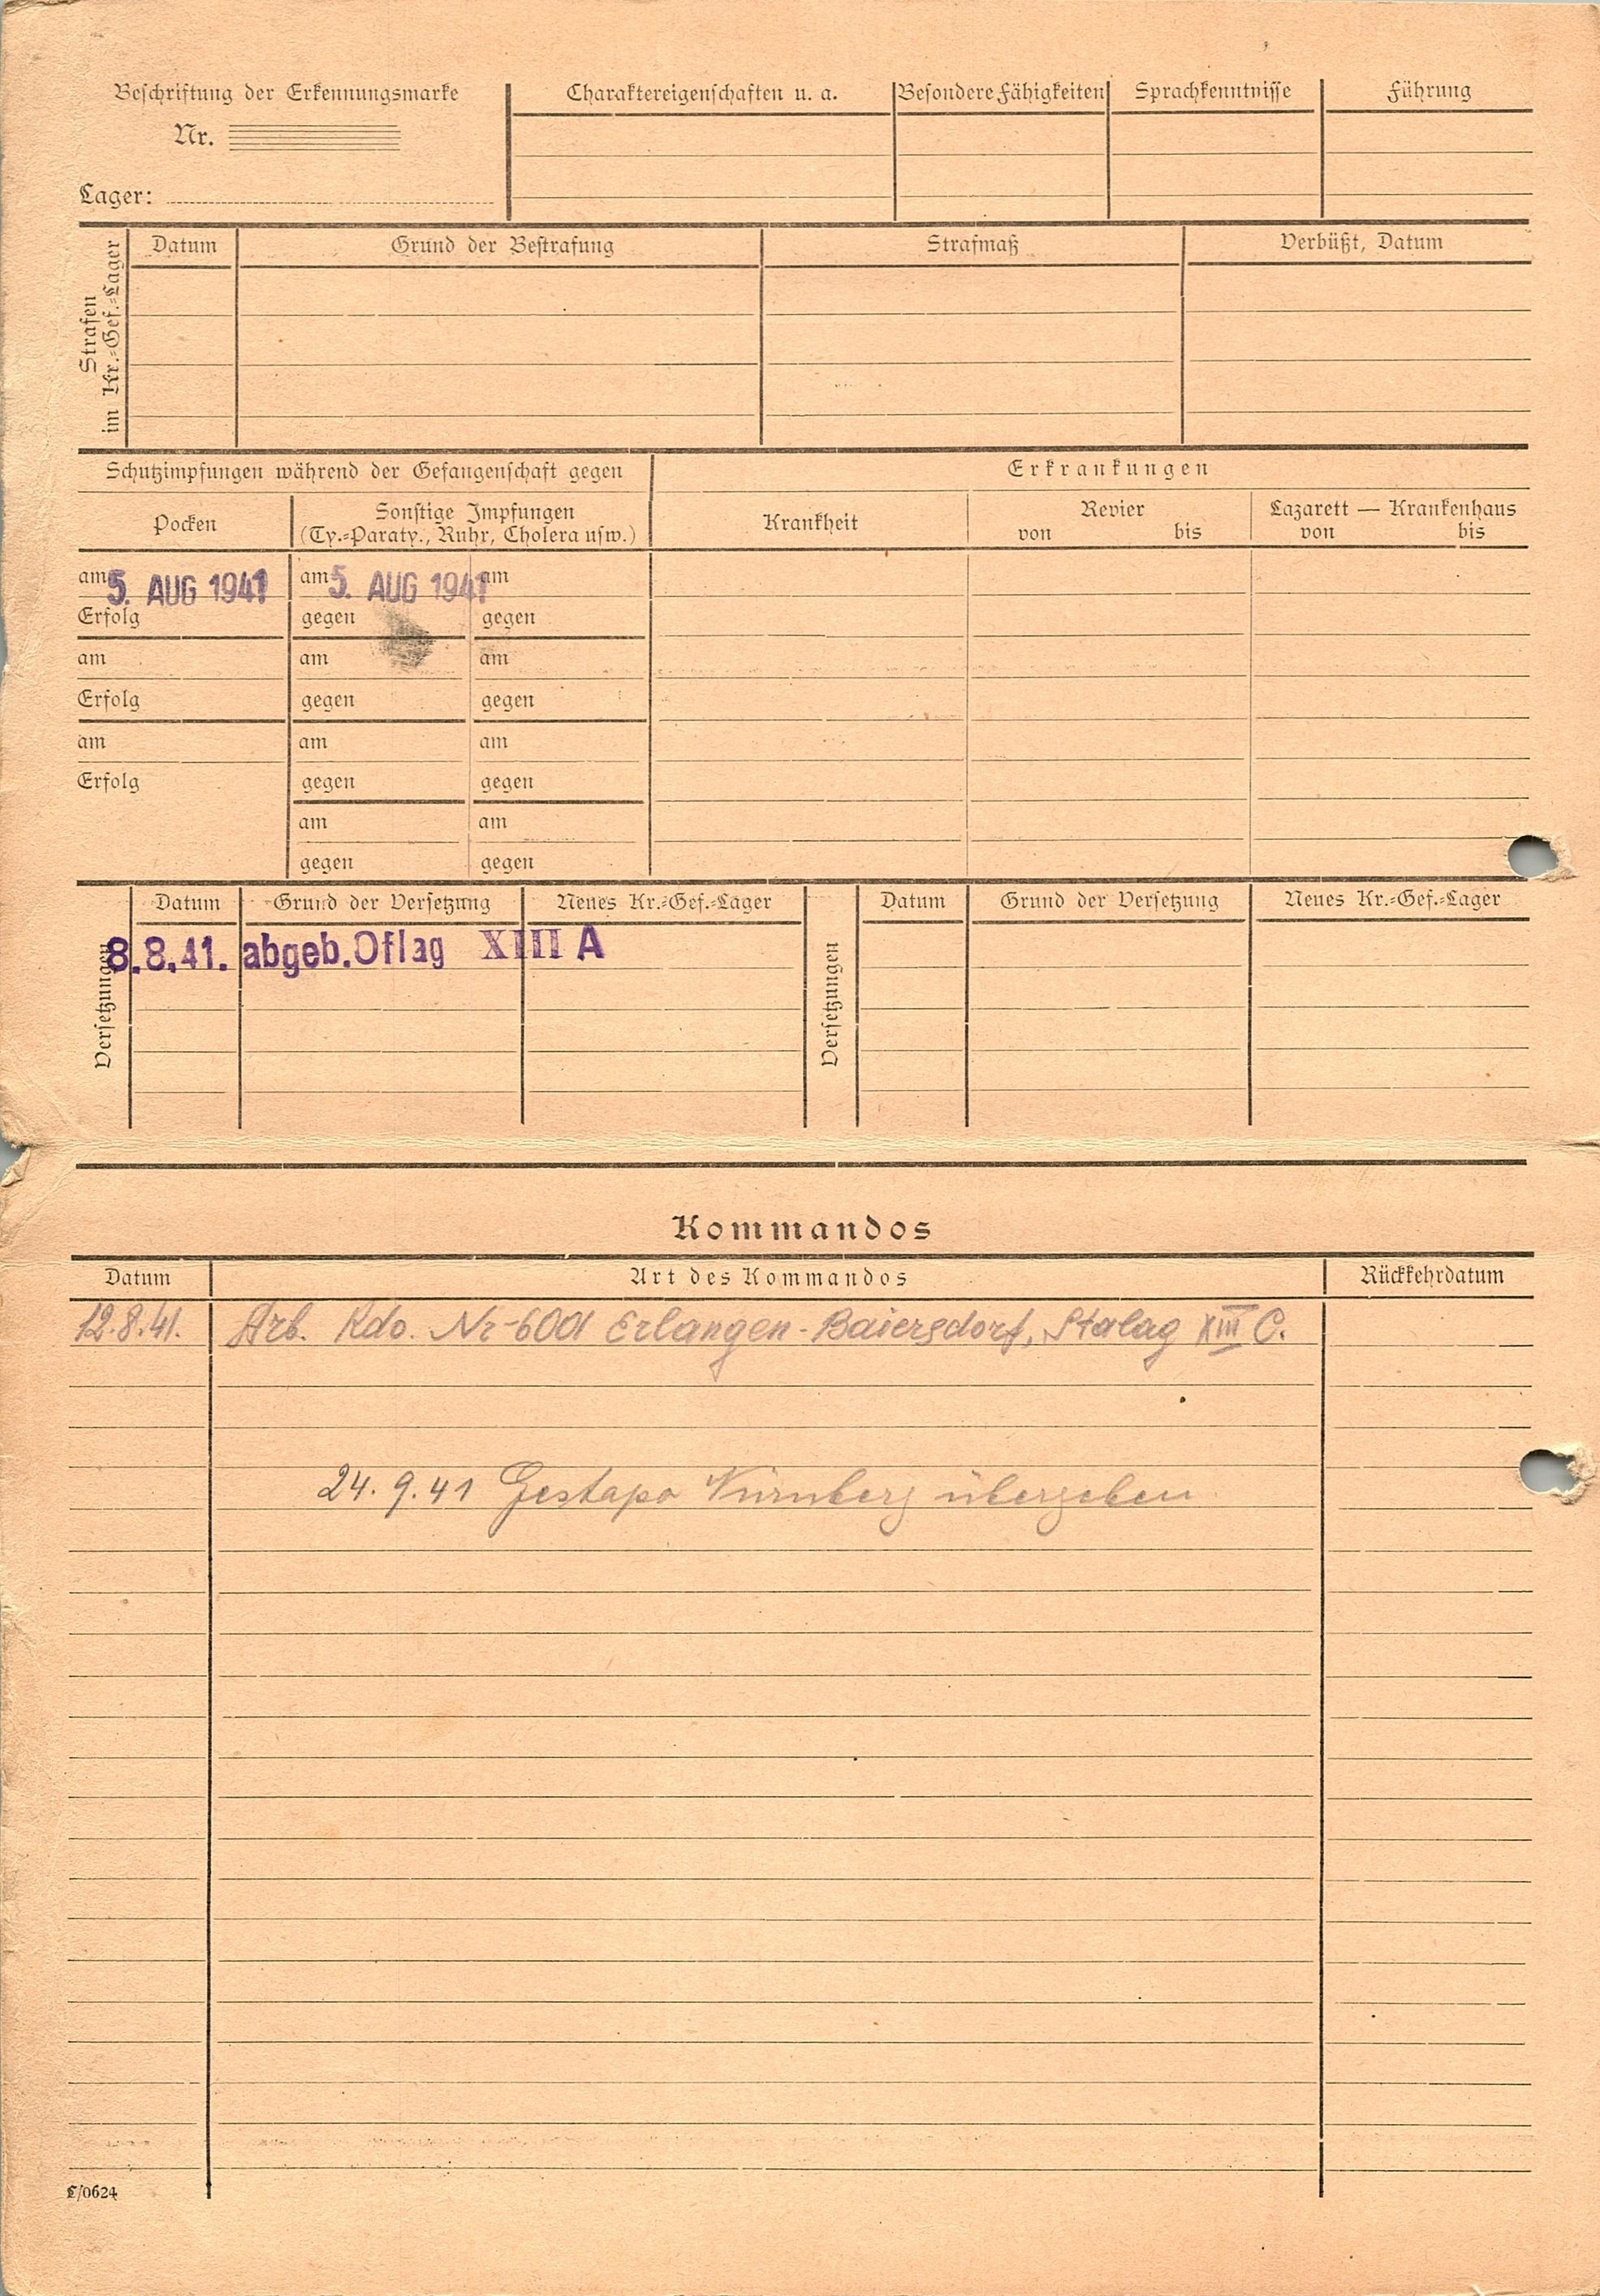 Beschriftung der Erkennungsmarke
Nr.
Lager:
Charaktereigenschaften u. a.
Besondere Fähigkeiten
Sprachkenntnisse
Führung
Strafen
im Kr.=Gef.=Lager
Datum
Grund der Bestrafung
Strafmaß
Verbüßt, Datum
Schutzimpfungen während der Gefangenschaft gegen
Erkrankungen
Pocken
Sonstige Impfungen
(Ty.=Paraty., Ruhr, Cholera usw.)
Krankheit
Revier
von bis
Lazarett — Krankenhaus
von bis
am 5. AUG 1941 am 5. AUG 1941 am
Erfolg gegen gegen
am am am
Erfolg gegen gegen
am am am
Erfolg gegen gegen
am am
gegen gegen
Versetzungen
Datum Grund der Versetzung Neues Kr.=Gef.=Lager
8.8.41. abgeb. Oflag XIII A
Versetzungen
Datum Grund der Versetzung Neues Kr.=Gef.=Lager
Kommandos
Datum Art des Kommandos Rückkehrdatum
12.8.41. Arb. Kdo. Nr-6001 Erlangen-Baiersdorf, Stalag XIII C.
24.9.41 Gestapo Nürnberg übergeben
C/0624